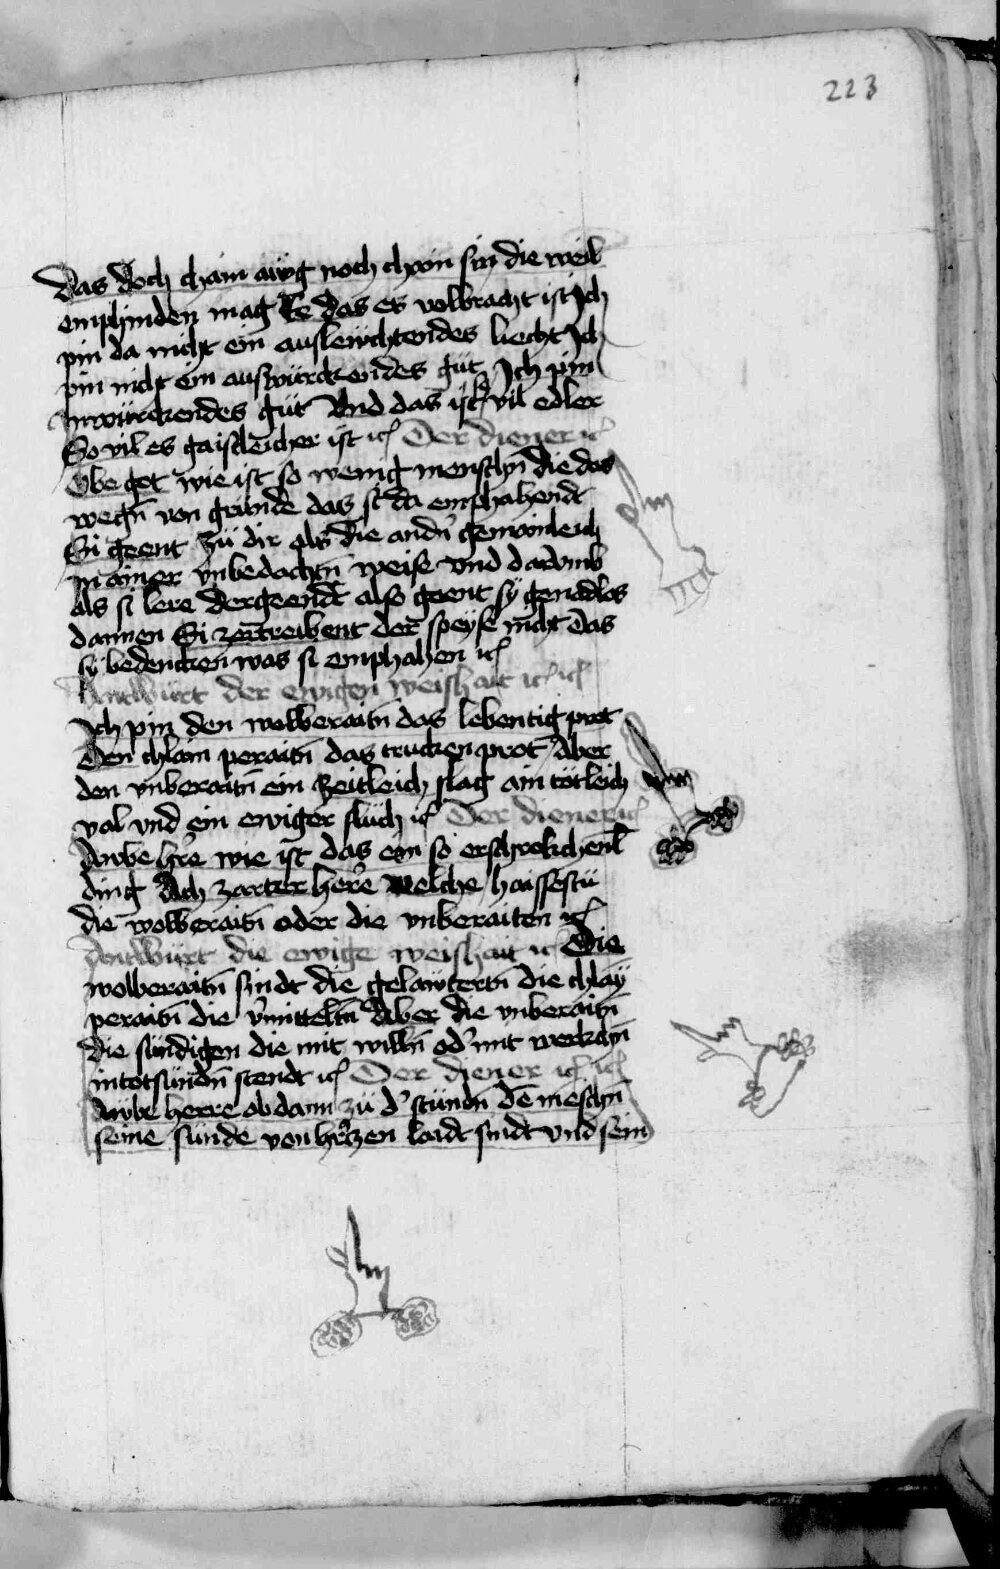 223
Das doch chain awg noch chain sin die weil
emphinden mag Ee das es volbracht ist Ich
pin da nicht ein auslewchtendes liecht Ich
pin nicht ein auswürckendes güt Ich pin
Inwürckendes güt Vnd das ist so vil edler
So vil es gaistleicher ist ꝛc Der diener ꝛc
Obe got wie ist so wenig menschn̄ die das
wegn̄ von grunde das si da emphahendt
Si geent zü dir als die andn̄ gemainleich
in ainer vnbedachtn̄ weise vnd darumb
als si lere dergeendt also geent sy genadlos
dannen Si zertreibent der speyse nicht das
sy bedencken was si emphahen ꝛc
Antwürt der ewigen weishait ꝛc ꝛc
Ich pin den wolberaitn̄ das lebentig prot
Den chlain peraitn̄ das trucken prot Aber
den vnberaitn̄ ein zeitleich slag ain tötleich
val vnd ein ewiger fluch ꝛc Der diener ꝛc
Awbe hr̄e wie ist das ein so erschrokchenl̄
ding Ach zarter herre Welche haissestü
die wolberaitn̄ oder die vnberaiten ꝛc
Antwürt die ewige weishait ꝛc Die
wolberaitn̄ sindt die gelawtertn̄ die chlay
peraitn̄ die v̓mitteltn̄ Aber die vnberaitn̄
die sündigen die mit willn̄ od̓ mit werkchn̄
in totsündn̄ stendt ꝛc Der diener ꝛc ꝛc
Awbe herre ob dann zü d̓ stündn̄ dē meschn̄
seine sünde von hertzen laidt sindt vnd sein